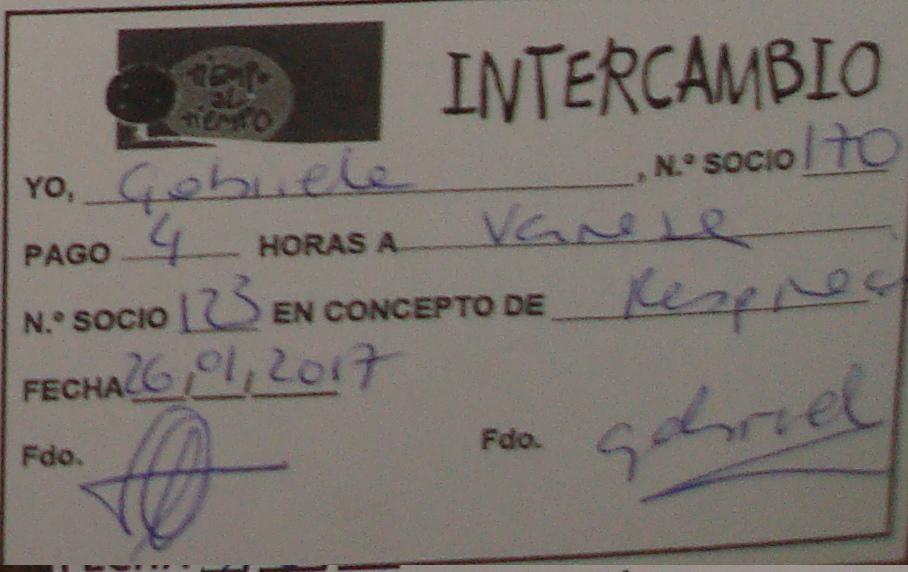 TIEMPO
AL
TIEMPO
INTERCAMBIO
YO, Gabriele, N.º SOCIO 170
PAGO 4 HORAS A Vanese
N.º SOCIO 123 EN CONCEPTO DE
FECHA 26,01,2017
Fdo. Fdo. Gabriel